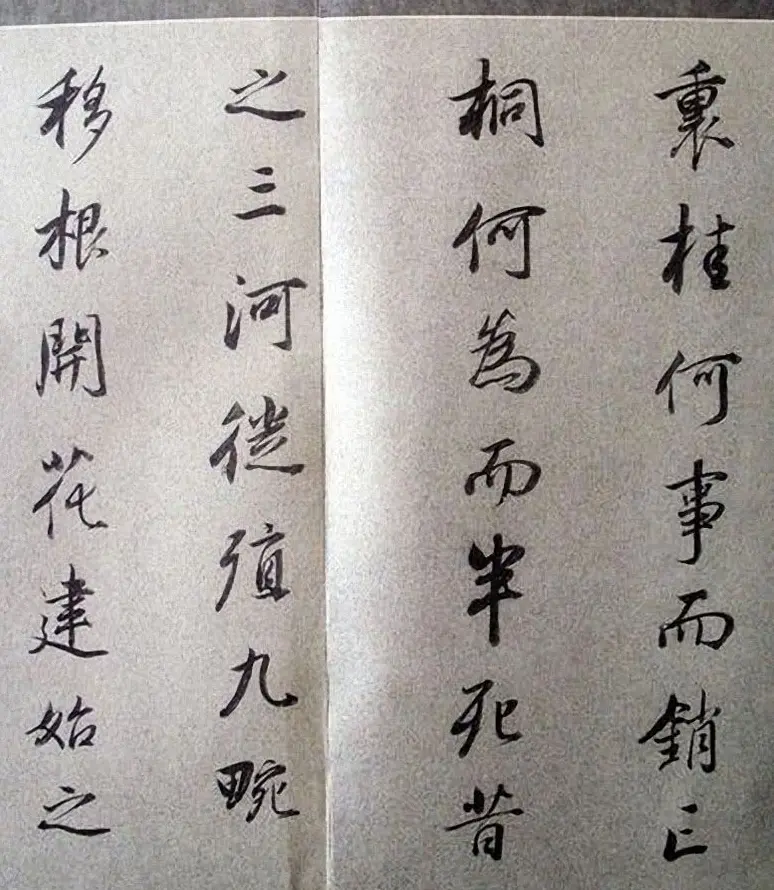 裏桂何事而銷亡
桐何為而半死昔
之三河徙殖九畹
移根開花建始之